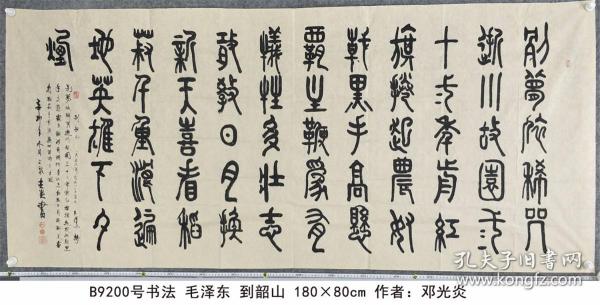 別夢依稀咒
逝川故園三
十二年前紅
旗捲起農奴
戟黑手高懸
霸主鞭爲有
犧牲多壯志
敢教日月換
新天喜看稻
菽千重浪遍
地英雄下夕
煙
孔夫子旧书网
B9200号书法 毛泽东 到韶山 180×80cm 作者: 邓光炎